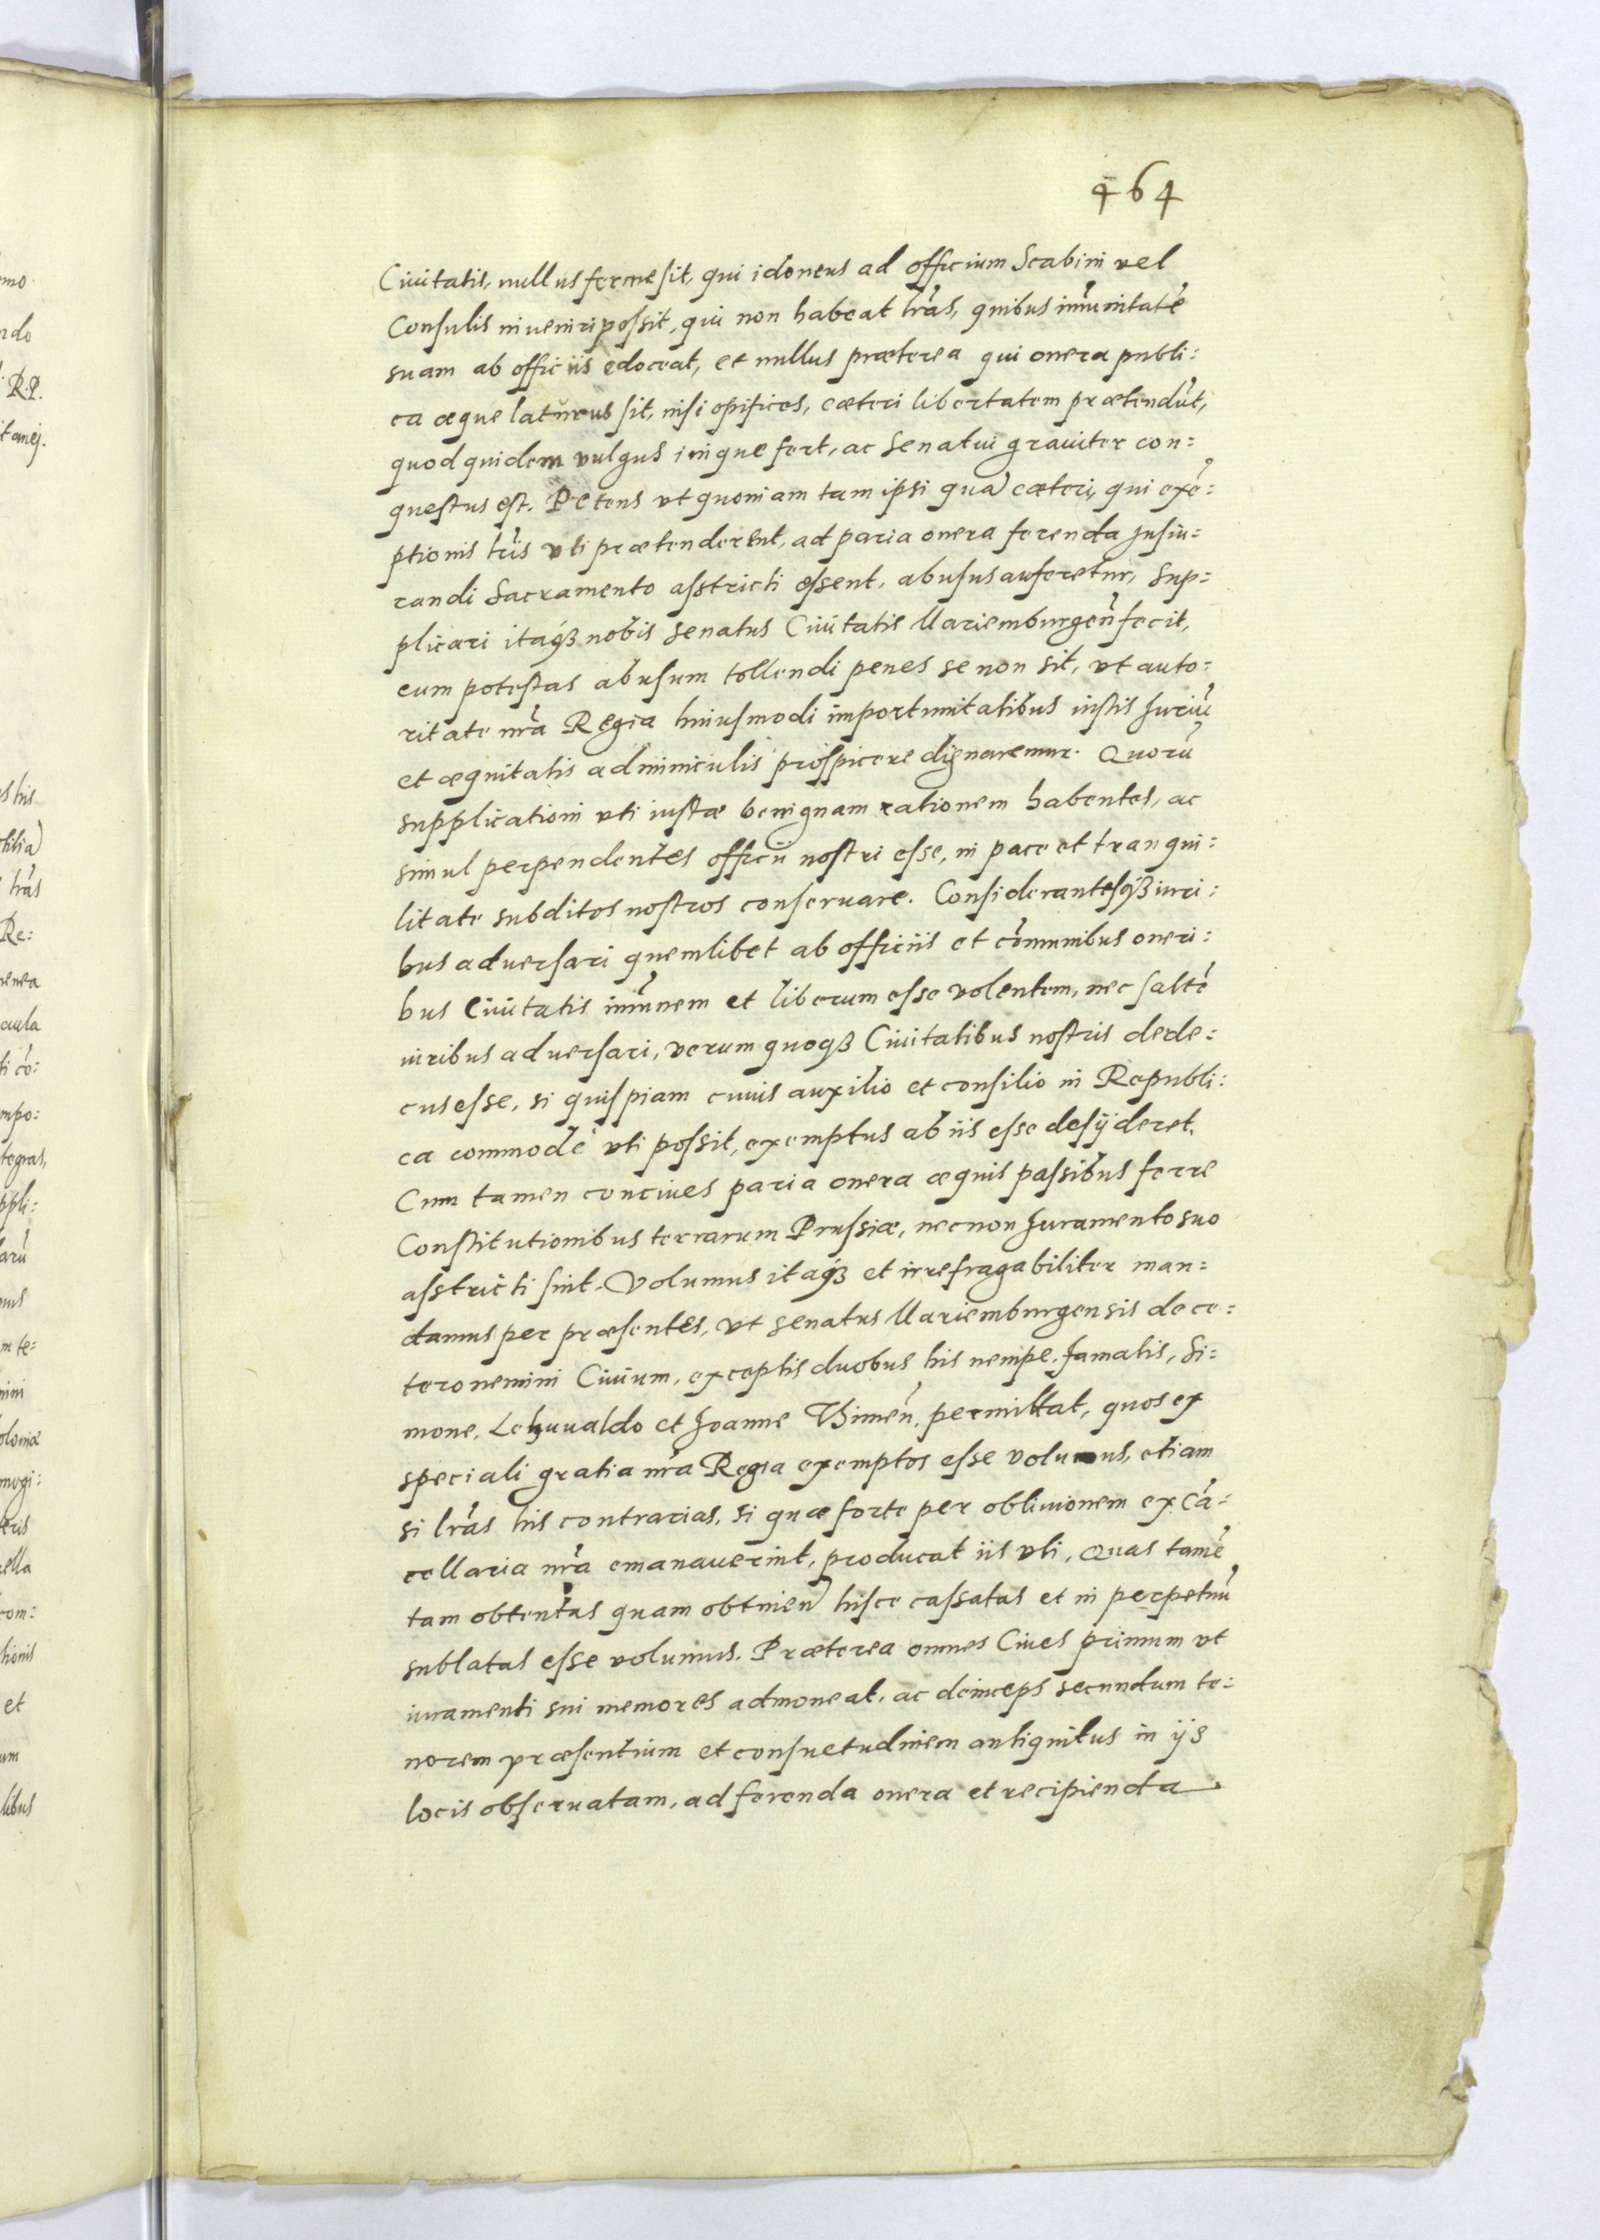 464
Ciuitatis, nullus ferme sit, qui idoneus ad officium Scabini vel
Consulis inueniri possit, qui non habeat lr̃as, quibus im̃unitatẽ
suam ab officiis edoceat, et nullus præterea qui onera publi:
ca æque laturus sit, nisi opifices, cæteri libertatem prætendũt,
quod quidem vulgus inique fert, ac Senatui grauiter con:
questus est. Petens vt quoniam tam ipsi quã cæteri, qui exẽ:
ptionis lr̃is vti prætenderent, ad paria onera ferenda Jusiu:
randi Sacramento asstricti essent, abusus auferetur, Sup:
plicari itaqȝ nobis Senatus Ciuitatis Mariemburgeñ fecit,
cum potestas abusum tollendi penes se non sit, vt auto:
ritate nr̃a Regia huiusmodi importunitatibus iustis Juriũ
et æquitatis adminiculis prospicere dignaremur. Quorũ
supplicationi vti iustæ benignam rationem habentes, ac
simul perpendentes officii nostri esse, in pace et tranqui:
litate subditos nostros conseruare. Considerantesqȝ iuri:
bus aduersari quemlibet ab officiis et cõmunibus oneri:
bus Ciuitatis im̃unem et liberum esse volentem, nec saltẽ
iuribus aduersari, verum quoqȝ Ciuitatibus nostris dede:
cus esse, si quispiam cuius auxilio et consilio in Republi:
ca commodè vti possit, exemptus ab iis esse desyderet.
Cum tamen conciues paria onera æquis passibus ferre
Constitutionibus terrarum Prussiæ, necnon Juramento suo
asstricti sint. Volumus itaqȝ et irrefragabiliter man:
damus per præsentes, vt Senatus Mariemburgensis de ce:
tero nemini Ciuium, exceptis duobus his nempe, famatis, Si:
mone, Lehuualdo et Joanne Thimeñ, permittat, quos ex
speciali gratia nr̃a Regia exemptos esse volumus, etiam
si lr̃as his contrarias, si quæ forte per obliuionem ex Cã:
cellaria nr̃a emanauerint, producat iis vti, Quas tamẽ
tam obtentas quam obtineñ hisce cassatas et in perpetuũ
sublatas esse volumus. Præterea omnes Ciues primum vt
iuramenti sui memores admoneat, ac deinceps secundum te:
norem præsentium et consuetudinem antiquitus in ijs
locis obseruatam, ad ferenda onera et recipienda